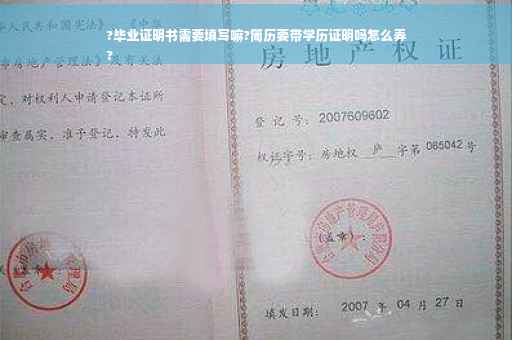 ?毕业证明书需要填写嘛?简历要带学历证明吗怎么弄
?
人民共和国宪法》
房地产管理法》及有关法
定,对权利人申请登记本证所
审查属实,准予登记,特发此
房地产权证
登 记 号: 2007609602
权证字号: 房地权 庐 字第 065042 号
(盖章):
填发日期: 2007 年 04 月 27 日